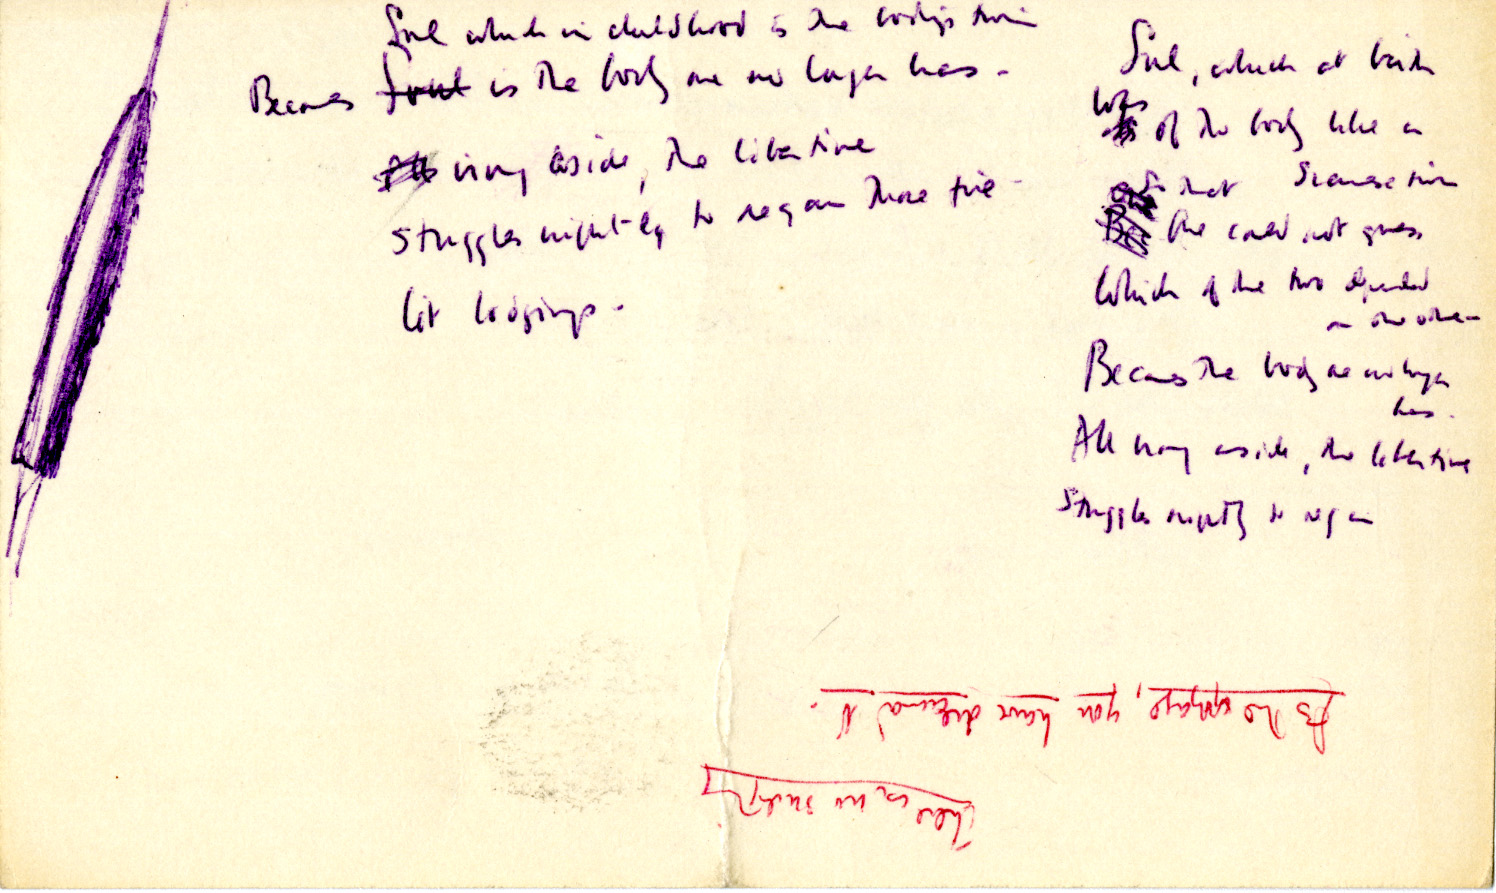 Soul which in childhood is the body's twin
Becomes Soul is the body one no longer has -
All irony aside, the libertine
struggles nightly to regain those fire-
lit lodgings -
Soul, which at birth
was
of the body like a
that Siamese twin
One could not guess
Which of the two depended
on the other -
Becomes the body one no longer
has.
All irony aside, the libertine
Struggles nightly to regain
As the voyage, you have dreamed it.
There is no